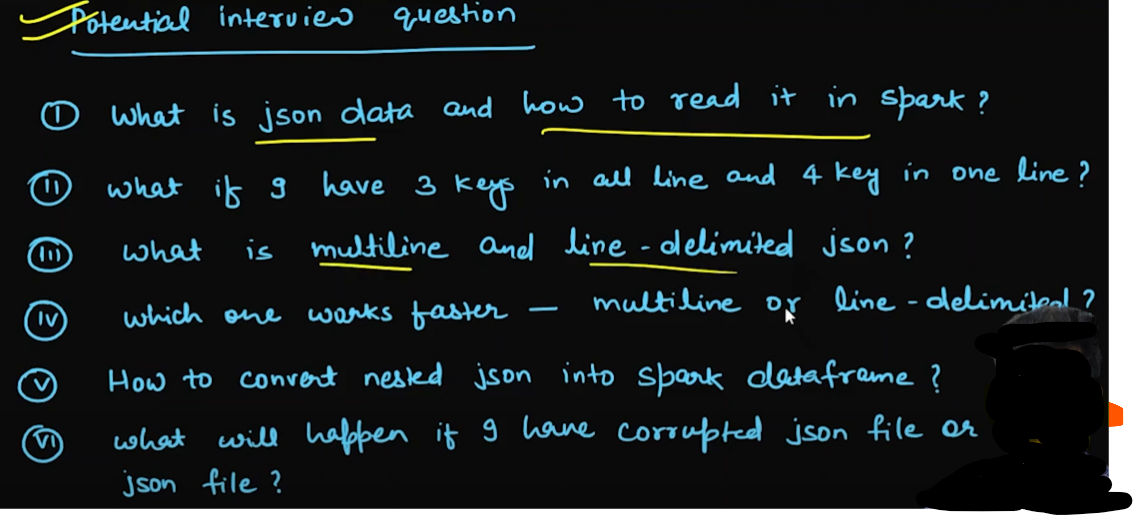 Potential interview question
(I) What is json data and how to read it in spark?
(II) what if I have 3 keys in all line and 4 key in one line?
(III) what is multiline and line-delimited json?
(IV) which one works faster — multiline or line-delimited?
(V) How to convert nested json into spark dataframe?
(VI) what will happen if I have corrupted json file or
json file?